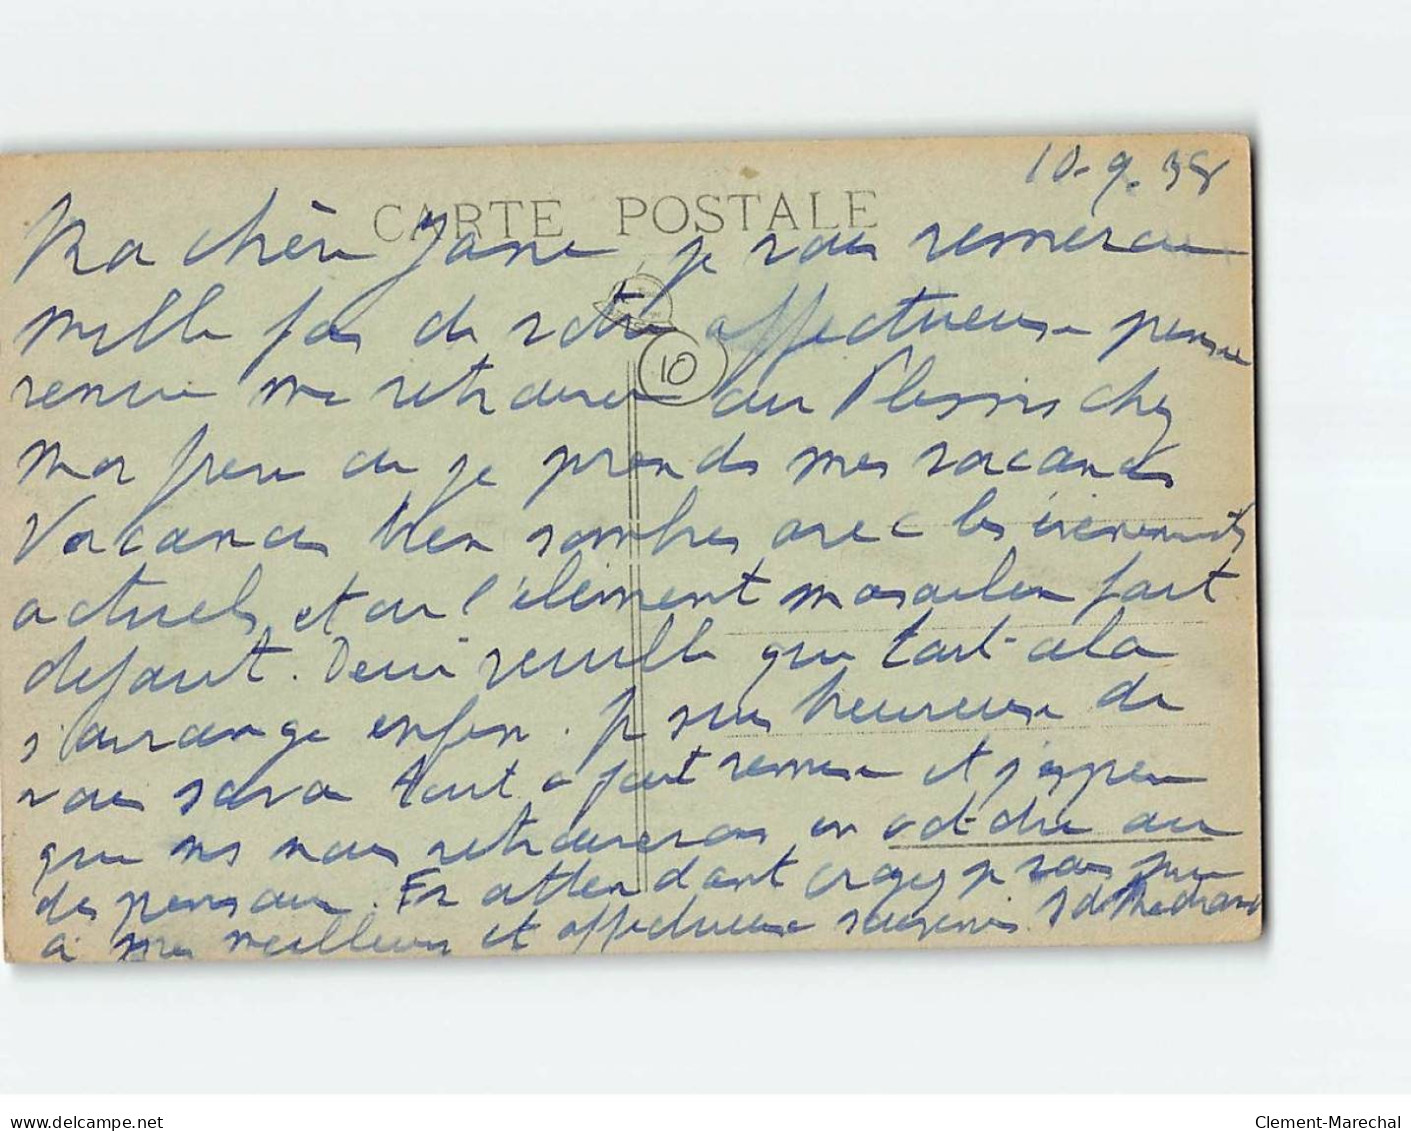 10.9.38
CARTE POSTALE
Ma chère Jane, je vous remercie
mille fois de votre affectueuse pensée
venue me retrouver au Plessis chez
mon frère où je prends mes vacances
Vacances bien sombres avec les événements
actuels et où l'élément masculin fait
défaut. Dieu veuille que tout cela
s'arrange enfin. Je suis heureuse de
vous savoir tout à fait remise et j'espère
que nous nous retrouverons en octobre au
des pensaux. En attendant croyez je vous prie
à mes meilleurs et affectueux souvenirs
10
Clement-Marechal
delcampe.net